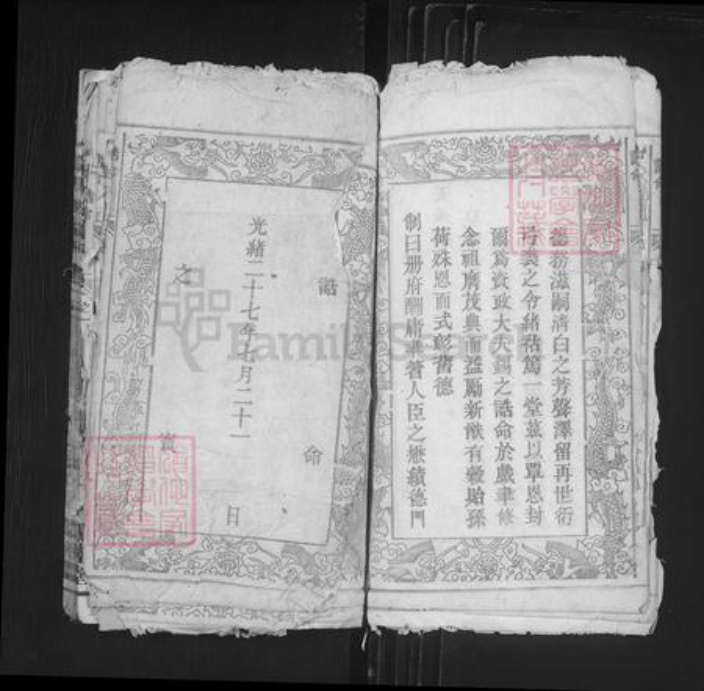 德務滋嗣清白之芳聲澤留再世衍
弓裘之令緒祜篤一堂茲以覃恩封
爾爲資政大夫錫之誥命於戲聿修
念祖膺茂典而益勵新猷有穀貽孫
荷殊恩而式彰舊德
制曰册府酬庸聿著人臣之懋績德門
誥命
之寶
光緒二十七年七月二十一日
FamilySearch